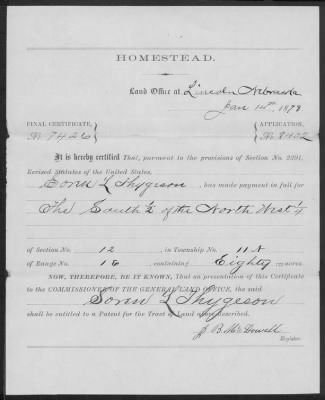 HOMESTEAD.
Land Office at Lincoln Nebraska
Jan 14th, 1879.
FINAL CERTIFICATE, APPLICATION,
No. 7426 No.
It is hereby certified That, pursuant to the provisions of Section No. 2291,
Revised Statutes of the United States,
Soren L Thygeson, has made payment in full for
The South ½ of the North West ¼
of Section No. 12 in Township No. 11 N
of Range No. containing Eighty acres.
NOW, THEREFORE, BE IT KNOWN, That on presentation of this Certificate
to the COMMISSIONER OF THE GENERAL LAND OFFICE, the said
Soren L Thygeson
shall be entitled to a Patent for the Tract of Land above described.
J. B. McDowell
Register.